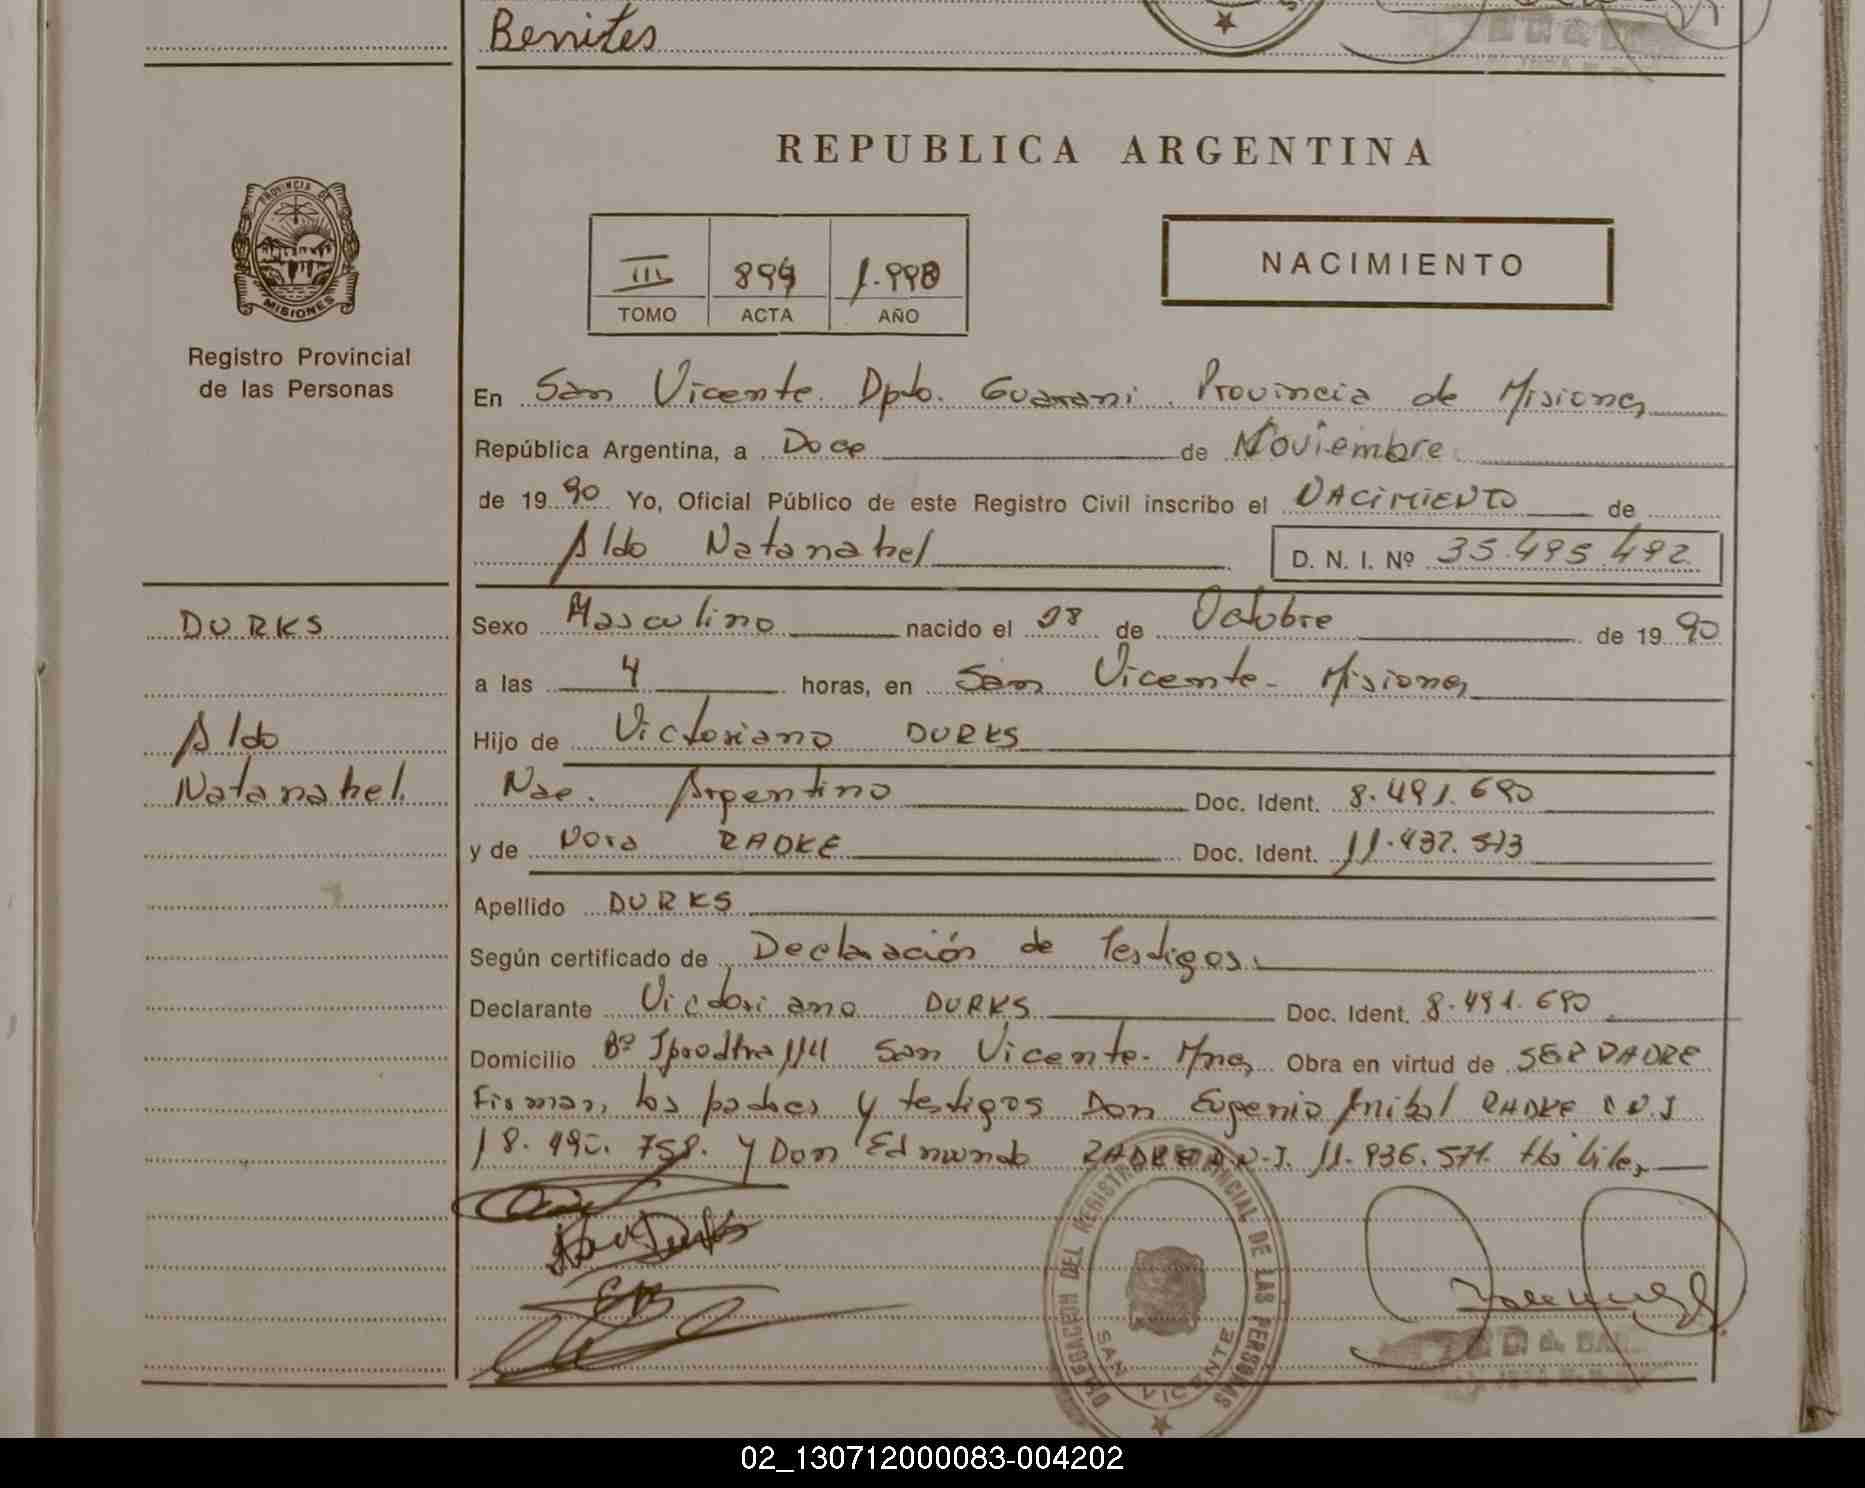 Benites
REPUBLICA ARGENTINA
PROVINCIA DE
MISIONES
Registro Provincial
de las Personas
NACIMIENTO
III 899 1.990
TOMO ACTA AÑO
En San Vicente Dpto. Guarani Provincia de Misiones
República Argentina, a Doce de Noviembre
de 1990 Yo, Oficial Público de este Registro Civil inscribo el NACIMIENTO de
Aldo Natanahel D. N. I. Nº 35.495.492
DURKS
Aldo
Natanahel
Sexo Masculino nacido el 28 de Octubre de 1990
a las 4 horas, en San Vicente - Misiones
Hijo de Victoriano DURKS
Nac. Argentino Doc. Ident. 8.491.690
y de Nora RADKE Doc. Ident. 11.437.573
Apellido DURKS
Según certificado de Declaración de Testigos
Declarante Victoriano DURKS Doc. Ident. 8.491.690
Domicilio Bº San Vicente - Mnes Obra en virtud de SER PADRE
Firman, los padres y testigos Don Eugenio Anibal RADKE D.N.I
18. 758. y Don Edmundo RADKE D.N.I. 11.936.571. Hábiles
DELEGACION DEL REGISTRO PROVINCIAL DE LAS PERSONAS
SAN VICENTE
02_130712000083-004202